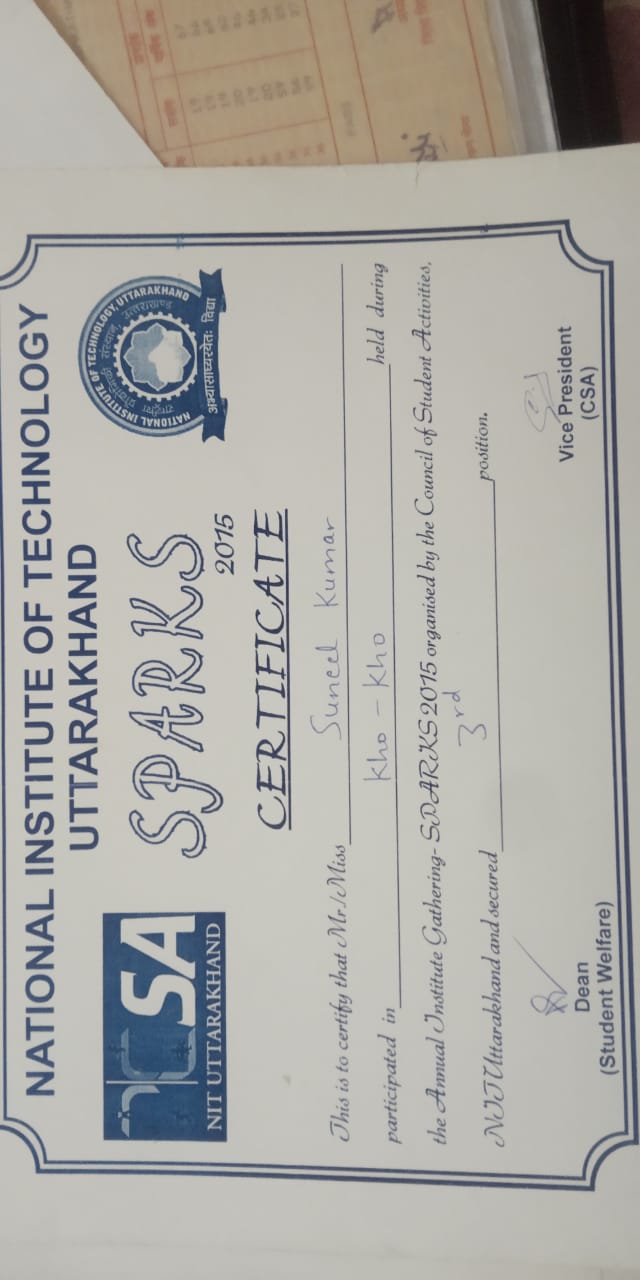 NATIONAL INSTITUTE OF TECHNOLOGY
UTTARAKHAND
CSA
NIT UTTARAKHAND
SPARKS
2015
NATIONAL INSTITUTE OF TECHNOLOGY, UTTARAKHAND
राष्ट्रीय प्रौद्योगिकी संस्थान, उत्तराखण्ड
CERTIFICATE
This is to certify that Mr./Miss Suneel Kumar
participated in Kho - Kho held during
the Annual Institute Gathering- SPARKS 2015 organised by the Council of Student Activities,
NIT Uttarakhand and secured 3rd position.
Dean
(Student Welfare)
Vice President
(CSA)